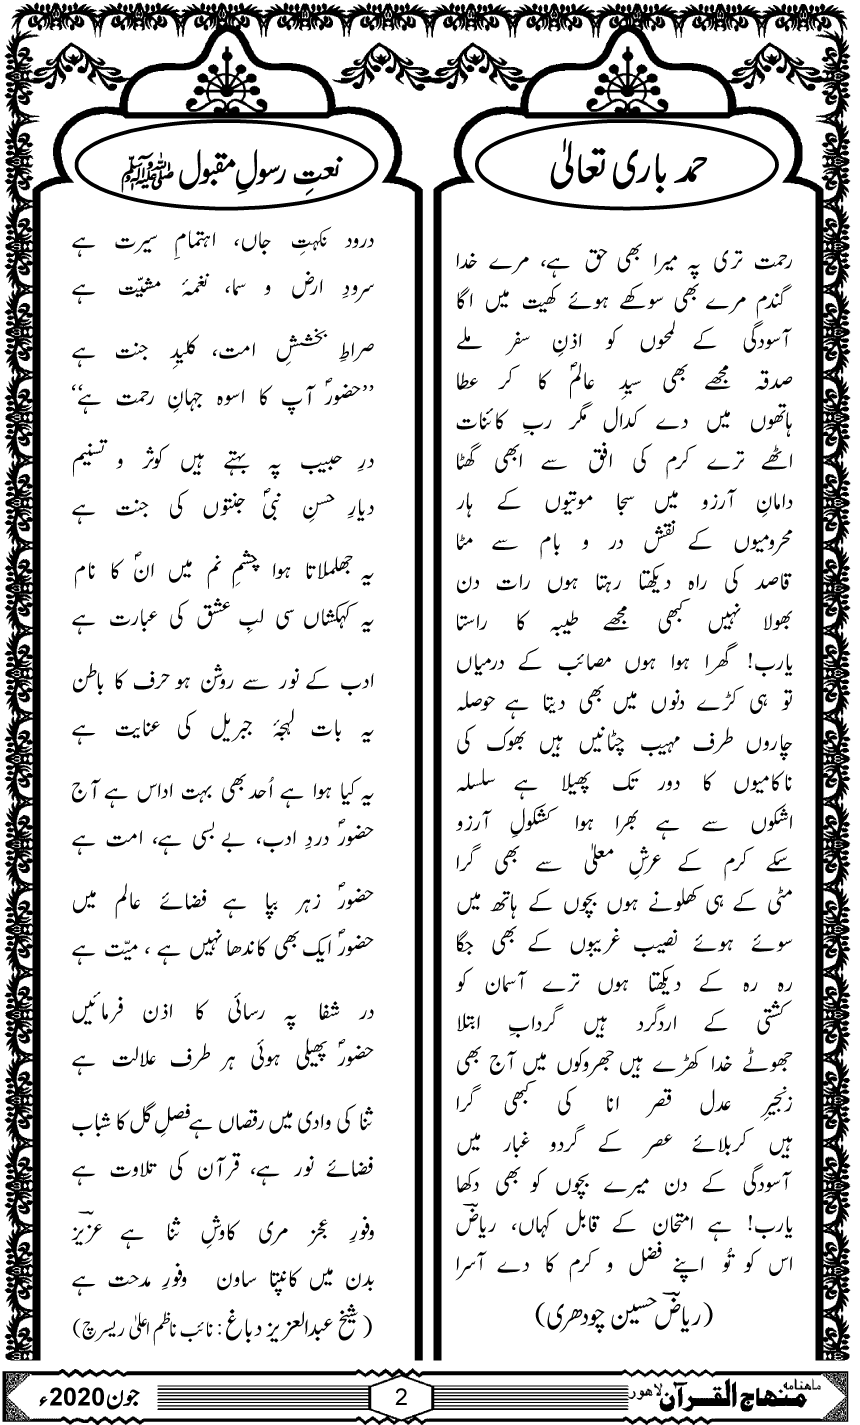 حمد باری تعالیٰ
رحمت تری پہ میرا بھی حق ہے، مرے خدا
گندم مرے بھی سوکھے ہوئے کھیت میں اگا
آسودگی کے لمحوں کو اذنِ سفر ملے
صدقہ مجھے بھی سیدِ عالمؐ کا کر عطا
ہاتھوں میں دے کدال مگر ربِ کائنات
اٹھے ترے کرم کی افق سے ابھی گھٹا
دامانِ آرزو میں سجا موتیوں کے ہار
محرومیوں کے نقش در و بام سے مٹا
قاصد کی راہ دیکھتا رہتا ہوں رات دن
بھولا نہیں کبھی مجھے طیبہ کا راستا
یارب! گھرا ہوا ہوں مصائب کے درمیاں
تو ہی کڑے دنوں میں بھی دیتا ہے حوصلہ
چاروں طرف مہیب چٹانیں ہیں بھوک کی
ناکامیوں کا دور تک پھیلا ہے سلسلہ
اشکوں سے ہے بھرا ہوا کشکولِ آرزو
سکے کرم کے عرشِ معلیٰ سے بھی گرا
مٹی کے ہی کھلونے ہوں بچوں کے ہاتھ میں
سوئے ہوئے نصیب غریبوں کے بھی جگا
رہ رہ کے دیکھتا ہوں ترے آسمان کو
کشتی کے اردگرد ہیں گردابِ ابتلا
جھوٹے خدا کھڑے ہیں جھروکوں میں آج بھی
زنجیرِ عدل قصر انا کی کبھی گرا
ہیں کربلائے عصر کے گردو غبار میں
آسودگی کے دن میرے بچوں کو بھی دکھا
یارب! ہے امتحان کے قابل کہاں، ریاضؔ
اس کو تُو اپنے فضل و کرم کا دے آسرا
(ریاضؔ حسین چودھری)
نعتِ رسولِ مقبول ﷺ
درود نکہتِ جاں، اہتمامِ سیرت ہے
سرودِ ارض و سما، نغمۂ مشیّت ہے
صراطِ بخششِ امت، کلیدِ جنت ہے
’’حضورؐ آپ کا اسوہ جہانِ رحمت ہے‘‘
درِ حبیب پہ بہتے ہیں کوثر و تسنیم
دیارِ حسنِ نبیؐ جنتوں کی جنت ہے
یہ جھلملاتا ہوا چشمِ نم میں انؐ کا نام
یہ کہکشاں سی لبِ عشق کی عبارت ہے
ادب کے نور سے روشن ہو حرف کا باطن
یہ بات لہجۂ جبریل کی عنایت ہے
یہ کیا ہوا ہے اُحد بھی بہت اداس ہے آج
حضورؐ دردِ ادب، بے بسی ہے، امت ہے
حضورؐ زہر بپا ہے فضائے عالم میں
حضورؐ ایک بھی کاندھا نہیں ہے ، میّت ہے
در شفا پہ رسائی کا اذن فرمائیں
حضورؐ پھیلی ہوئی ہر طرف علالت ہے
ثنا کی وادی میں رقصاں ہے فصلِ گل کا شباب
فضائے نور ہے، قرآن کی تلاوت ہے
وفورِ عجز مری کاوشِ ثنا ہے عزیزؔ
بدن میں کانپتا ساون وفورِ مدحت ہے
(شیخ عبدالعزیز دباغ: نائب ناظم اعلیٰ ریسرچ)
ماہنامہ منہاج القرآن لاہور
2
جون 2020ء